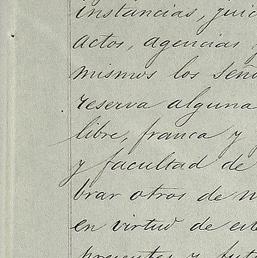 instancias, juic
actos, agencias y
mismos los Seño
reserva alguna
libre, franca y
y facultad de
brar otros de n
en virtud de est
presentes y fut